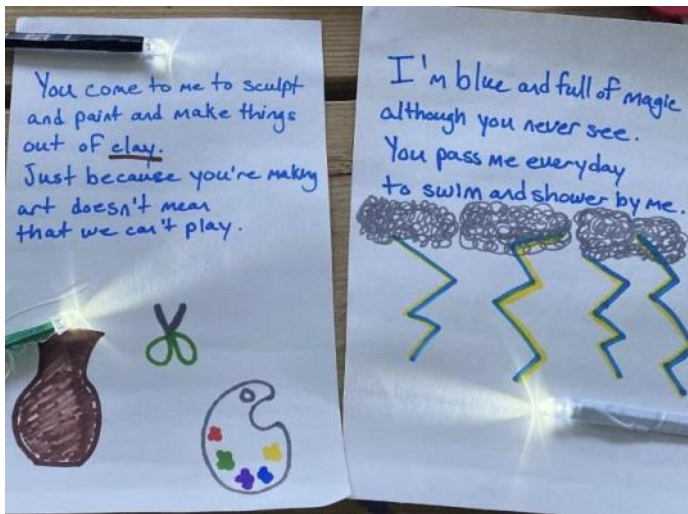 You come to me to sculpt
and paint and make things
out of clay.
Just because you're making
art doesn't mean
that we can't play.
I'm blue and full of magic
although you never see.
You pass me everyday
to swim and shower by me.